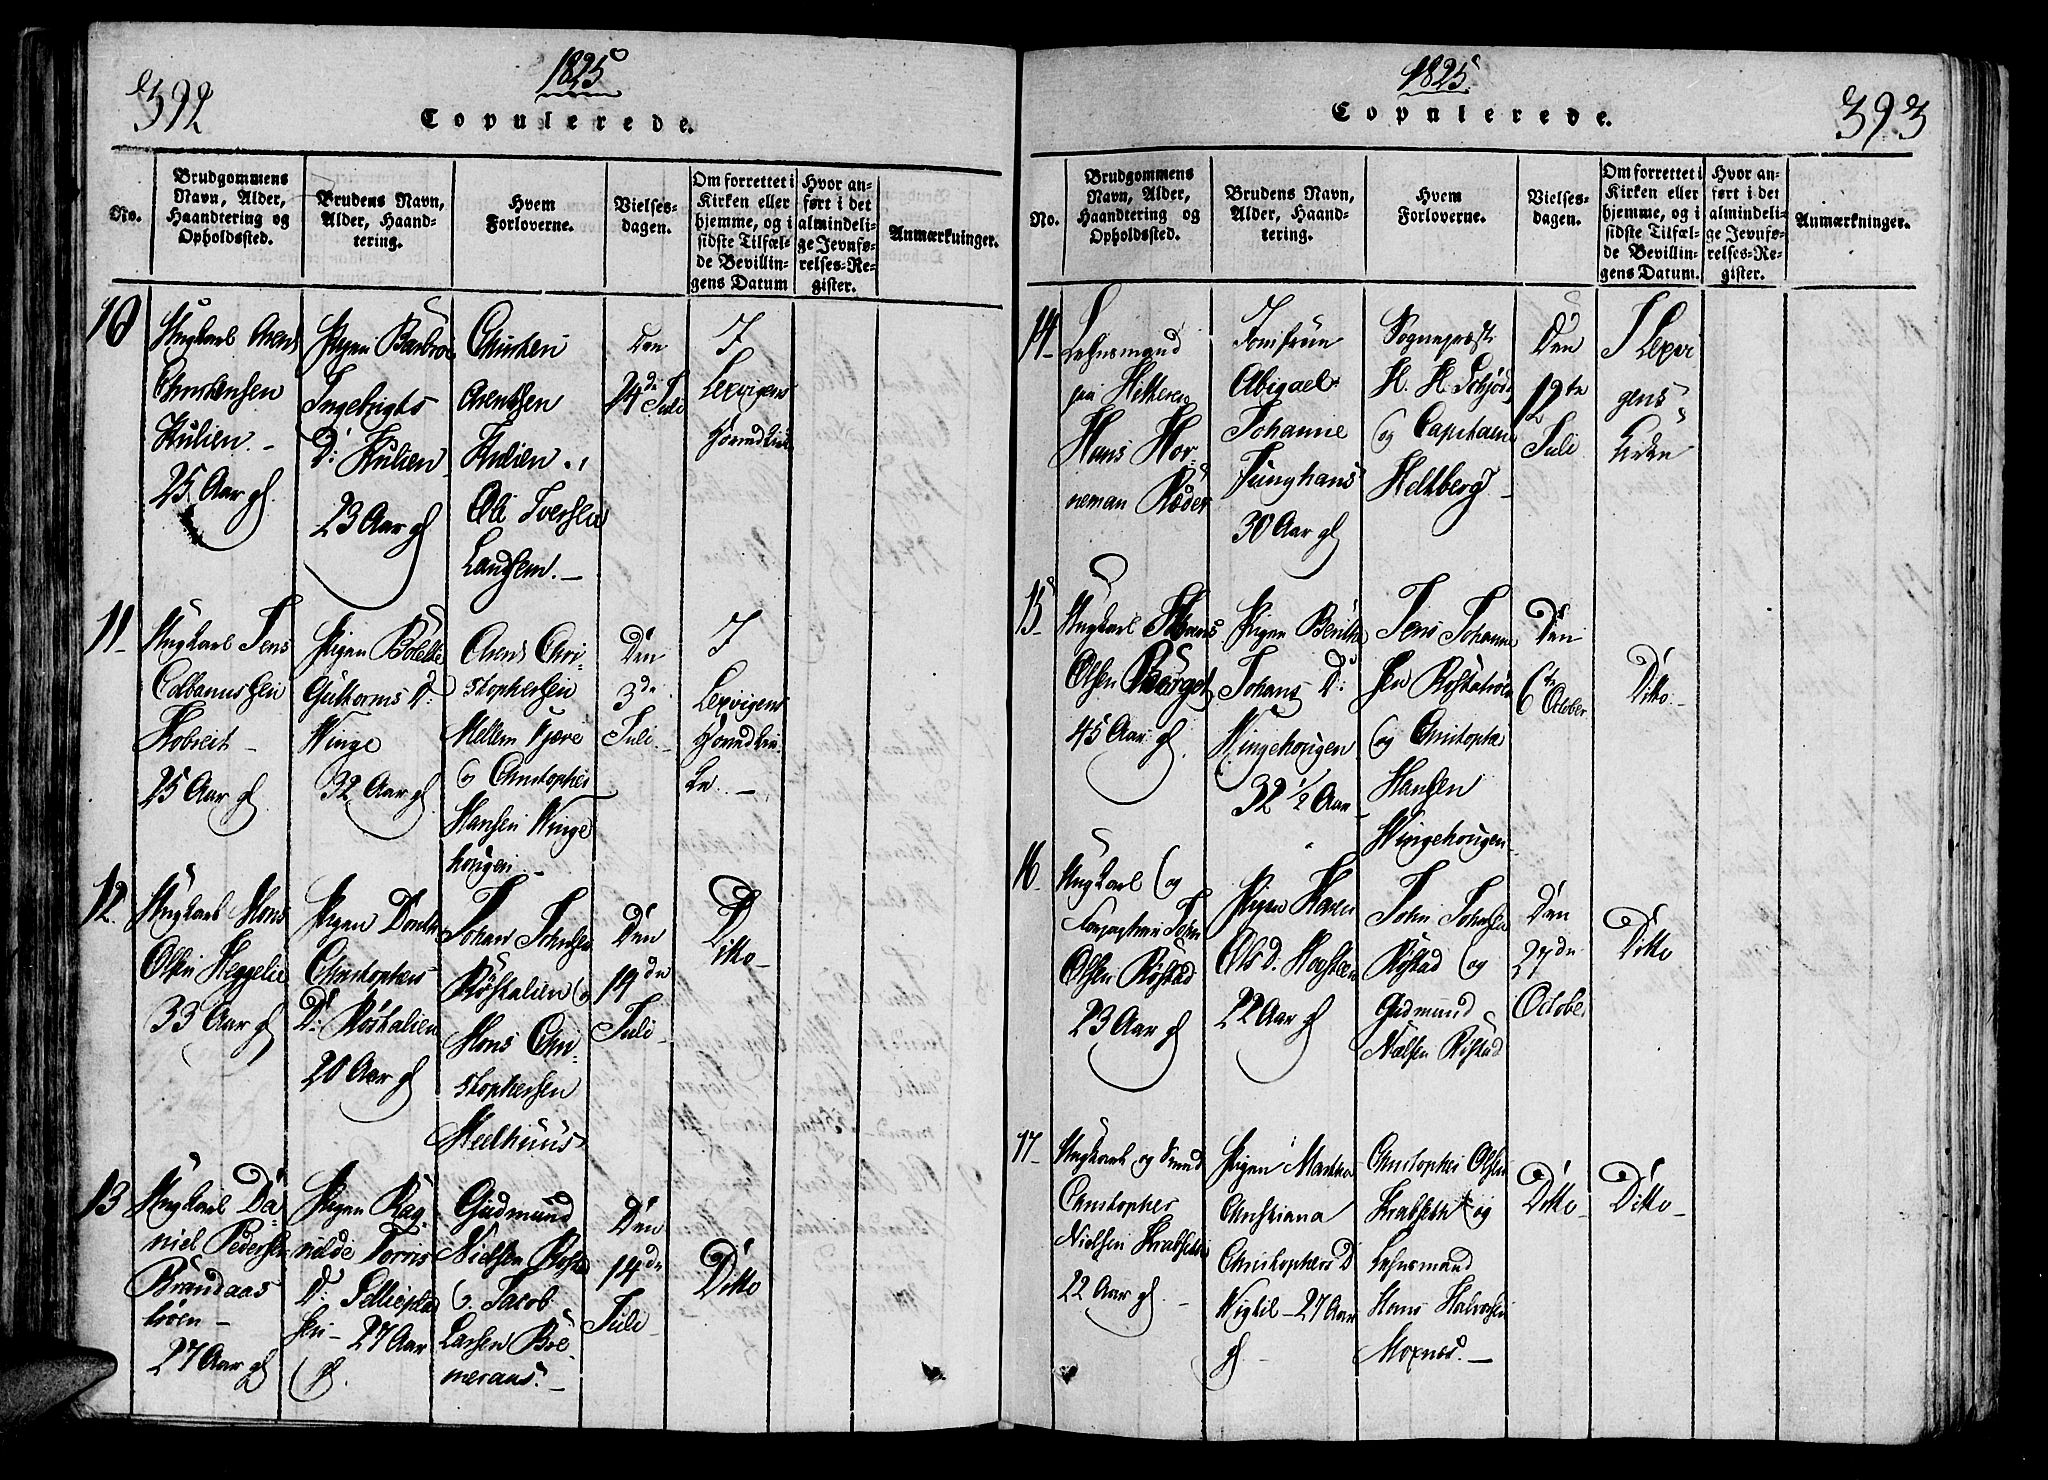 392
1825
Copulerede.
No.
Brudgommens
Navn, Alder,
Haandtering og
Opholdssted.
Brudens Navn,
Alder, Haand-
tering.
Hvem
Forloverne.
Vielses-
dagen.
Om forrettet i
Kirken eller
hjemme, og i
sidste Tilfæl-
de Bevillin-
gens Datum
Hvor an-
ført i det
almindeli-
ge Jevnfø-
relses-Re-
gister.
Anmærkninger.
10
Ungkarl Arent
Christensen
Hulien. -
25 Aar gl.
Pigen Barbroe
Ingebrigts
D: Hulien
23 Aar gl
Christen
Arentsen
Hulien
Ole Iversen
Den
24de Juli
I
Lexvigens
Hovedkirke
11
Ungkarl Jens
Colbanussen
25 Aar gl.
Pigen
Guttorms D:
Winge
32 Aar gl
Arent Chri-
stophersen
Mellem
og Christopher
Hansen Winge
hougen
Den
3de
Juli. -
I
Lexvigens
Hovedkir-
ke. -
12.
Ungkarl Hans
Olsen Heggelie
33 Aar gl
Pigen
Christophers-
D: Røstalien
20 Aar gl
Johan Johnsen
Røstalien og
Hans Chri-
stophersen
Meelhuus
Den
19de
Juli -
Ditto -
13
Ungkarl Da-
niel Pedersen
Brandaas
trøen -
27 Aar gl
Pigen Rag-
nilde Torris
D:
27 Aar
gl.
Gudmund
Nielsen
og Jacob
Larsen
Den
14de
Juli -
Ditto
1825.
Copulerede.
393
No.
Brudgommens
Navn, Alder,
Haandtering og
Opholdssted.
Brudens Navn,
Alder, Haand-
tering.
Hvem
Forloverne.
Vielses-
dagen.
Om forrettet i
Kirken eller
hjemme, og i
sidste Tilfæl-
de Bevillin-
gens Datum.
Hvor an-
ført i det
almindeli-
ge Jevnfø-
relses-Re-
gister.
Anmærkninger.
14
Lehnsmand
paa Hitteren
Hans Hor-
neman Røder
Jomfrue
Abigael
Johanne
Junghans
30 Aar gl
Sognepræst
H. H. Schjøtt
og Capitaine
Heltberg -
Den
12te
Juli
I Lexvi
gens
Kirke
15
Ungkarl Hans
Olsen Berget
45 Aar gl.
Pigen Berithe
Johans D:
Wingehougen
32 1/2 Aar
Jens Johanne
sen
og Christopher
Hansen
Wingehougen -
Den
6te
October
Ditto. -
16
Ungkarl og
John
Olsen Røstad
23 Aar gl
Pigen Maren
Ols D.
22 Aar gl
John Johnsen
Røstad og
Gudmund
Nielsen Røstad
Den
27de
October
Ditto
17
Ungkarl og Smed
Christopher
Nielsen Krabseth
22 Aar gl. -
Pigen Martha
Christiana
Christophers D
Wigtil - 27 Aar
gl -
Christopher Olsen
Krabseth og
Lehnsmand
Hans Halvorsen
Moxnes. -
Ditto -
Ditto -